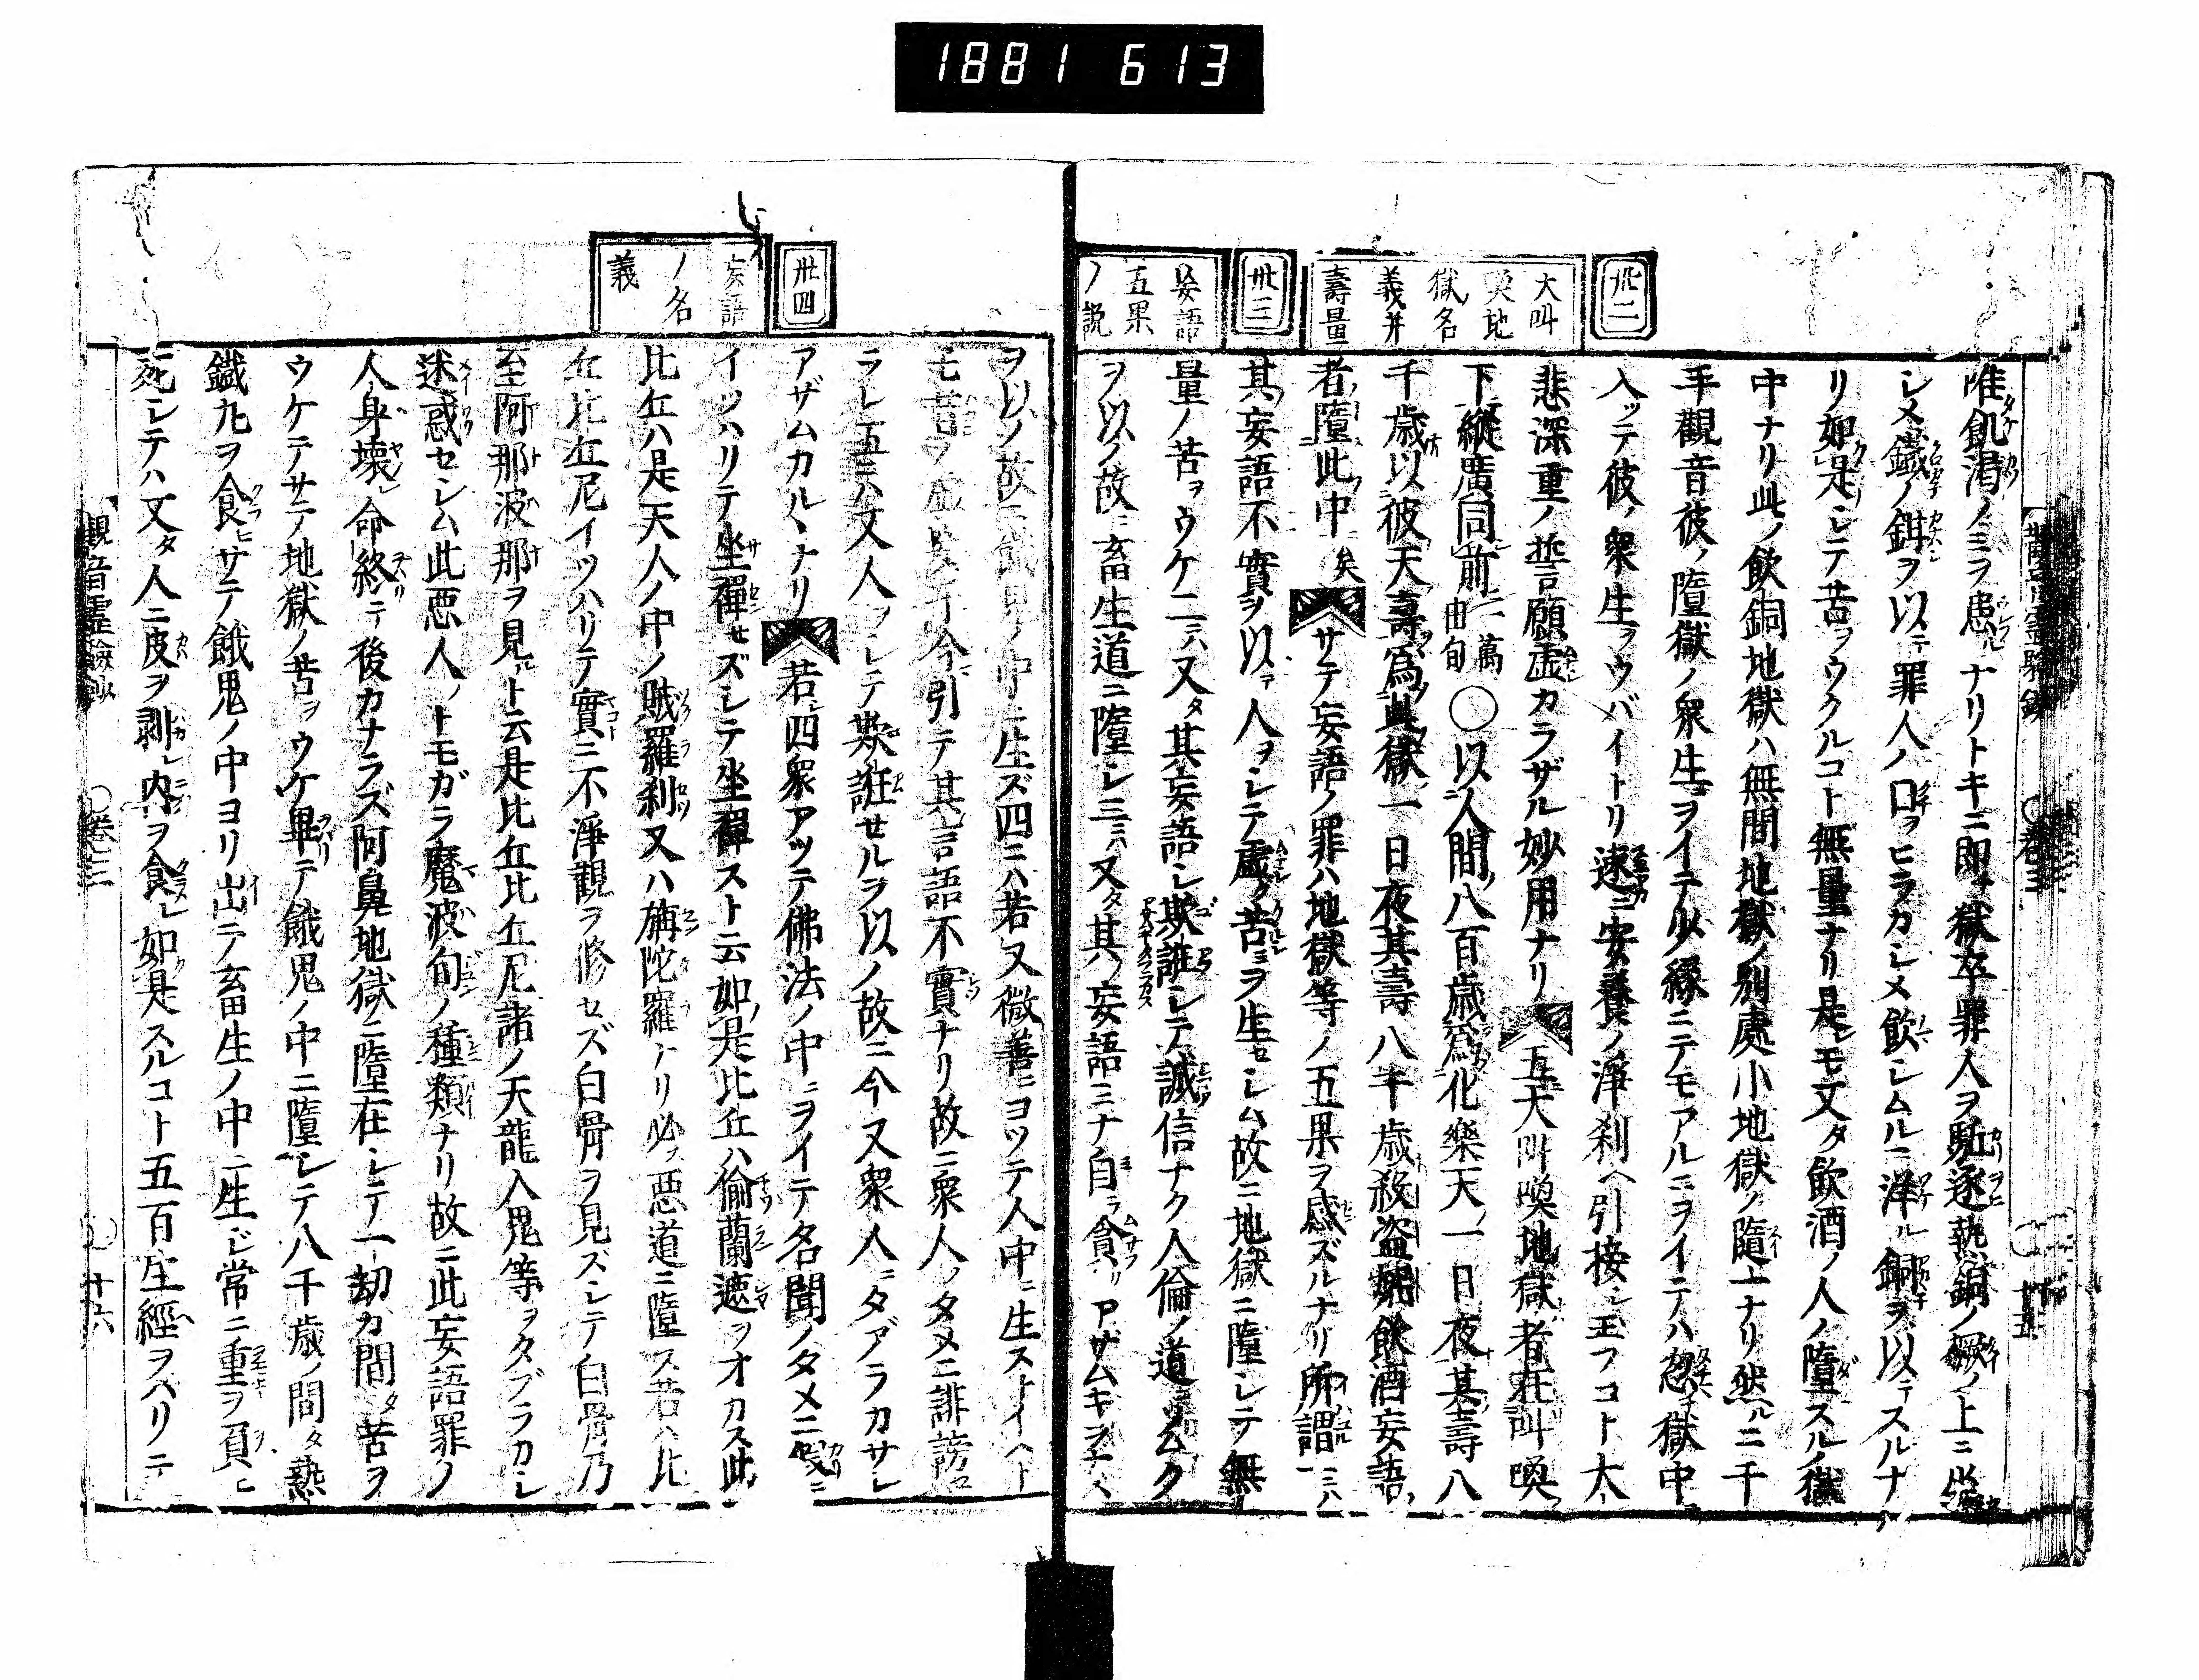 1881 613
卅二
大叫
喚地
獄名
義并
壽量
卅三
妄語
五果
ノ説
唯飢渇ノミヲ患ルナリトキニ即チ獄卒罪人ヲ駈逐執熱銅ノ橛ノ上ニ坐
シメ鐵ノ鉗ヲ以テ罪人ノ口ヲヒラカシメ飲シムルニ洋ル銅ヲ以テスルナ
リ如是シテ苦ヲウクルコト無量ナリ是レモ又タ飲酒ノ人ノ墮スルノ獄
中ナリ此ノ飲銅地獄ハ無間地獄ノ別處小地獄ノ隨一ナリ然ルニ千
手觀音彼ノ墮獄ノ衆生ヲイテ少縁ニテモアルニヲイテハ忽チ獄中
入ッテ彼ノ衆生ヲウバイトリ速ニ安養ノ淨刹ヘ引接シ玉フコト大
悲深重ノ誓願虚カラザル妙用ナリ 五大叫喚地獄者在叫喚
下縱廣同前二萬由旬〇以人間八百歳爲化樂天一日夜其壽八
千歳以彼天壽爲此獄一日夜其壽八千歳殺盗婬飲酒妄語
者墮此中矣 サテ妄語ノ罪ハ地獄等ノ五果ヲ感ズルナリ所謂一ニハ
其妄語不實ヲ以テ人ヲシテ虚ク苦ミヲ生セシム故ニ地獄ニ墮シテ無
量ノ苦ヲウケ二ニハ又タ其妄語シ欺誑シテ誠信ナク人倫ノ道ニソムク
ヲ以ノ故ニ畜生道ニ墮シ三ニハ又タ其ノ妄語ミナ自ラ貪リアザムキヲナス
卅四
妄語
ノ名
義
ヲ以ノ故ニ餓鬼ノ中ニ生ズ四ニハ若又微善ニヨッテ人中ニ生ストイヘト
モ昔ヲ虚妄ヲ今引テ其言語不實ナリ故ニ衆人ノタメニ誹謗セ
ラレ五ニハ又人ヲシテ欺誑セルヲ以ノ故ニ今又衆人ニタブラカサレ
アザムカルヽナリ 若四衆アッテ佛法ノ中ニヲイテ名聞ノタメニ假ニ
イツハリテ坐禪セズシテ坐禪スト云如是比丘ハ偷蘭遮ヲオカス此
比丘ハ是天人ノ中ノ賊羅刹又ハ旃陀羅ナリ必ス惡道ニ墮ス若ハ比
丘比丘尼イツハリテ實ニ不淨觀ヲ修セズ白骨ヲ見ズシテ白骨乃
至阿那波那ヲ見ルト云是比丘比丘尼諸ノ天龍人鬼等ヲタブラカシ
迷惑セシム此惡人ノトモガラ魔波旬ノ種類ナリ故ニ此妄語罪ノ
人身壞レ命終テ後カナラズ阿鼻地獄ニ墮在シテ一劫カ間タ苦ヲ
ウケテサテノ地獄ノ苦ヲウケ畢テ餓鬼ノ中ニ墮シテ八千歳ノ間タ熱
鐵丸ヲ食ヒサテ餓鬼ノ中ヨリ出テ畜生ノ中ニ生ジ常ニ重ヲ負ヒ
死シテハ又タ人ニ皮ヲ剥レ肉ヲ食レ如是スルコト五百生ヲ經ヲハリテ
觀音靈驗鈔 〇卷三 〇十六